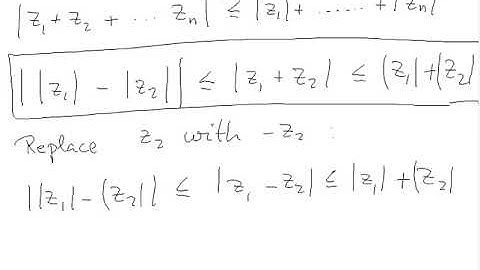 |z₁ + z₂ + ... zₙ| ≤ |z₁| + ...... + |zₙ|
||z₁| - |z₂|| ≤ |z₁ + z₂| ≤ |z₁| + |z₂|
Replace z₂ with - z₂ :
||z₁| - |z₂|| ≤ |z₁ - z₂| ≤ |z₁| + |z₂|